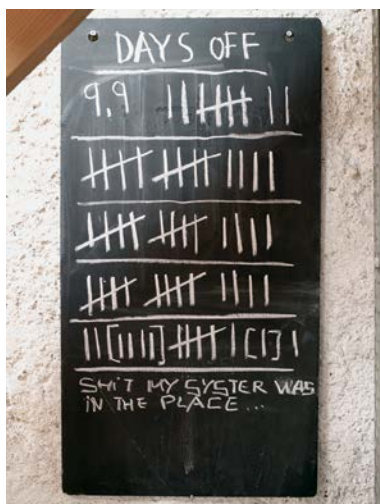 DAYS OFF
9,9 || 卌 ||
卌 卌 ||||
卌 卌 ||||
卌 卌 ||||
||[||||] 卌 | [|] |
SHIT MY SYSTER WAS
IN THE PLACE...